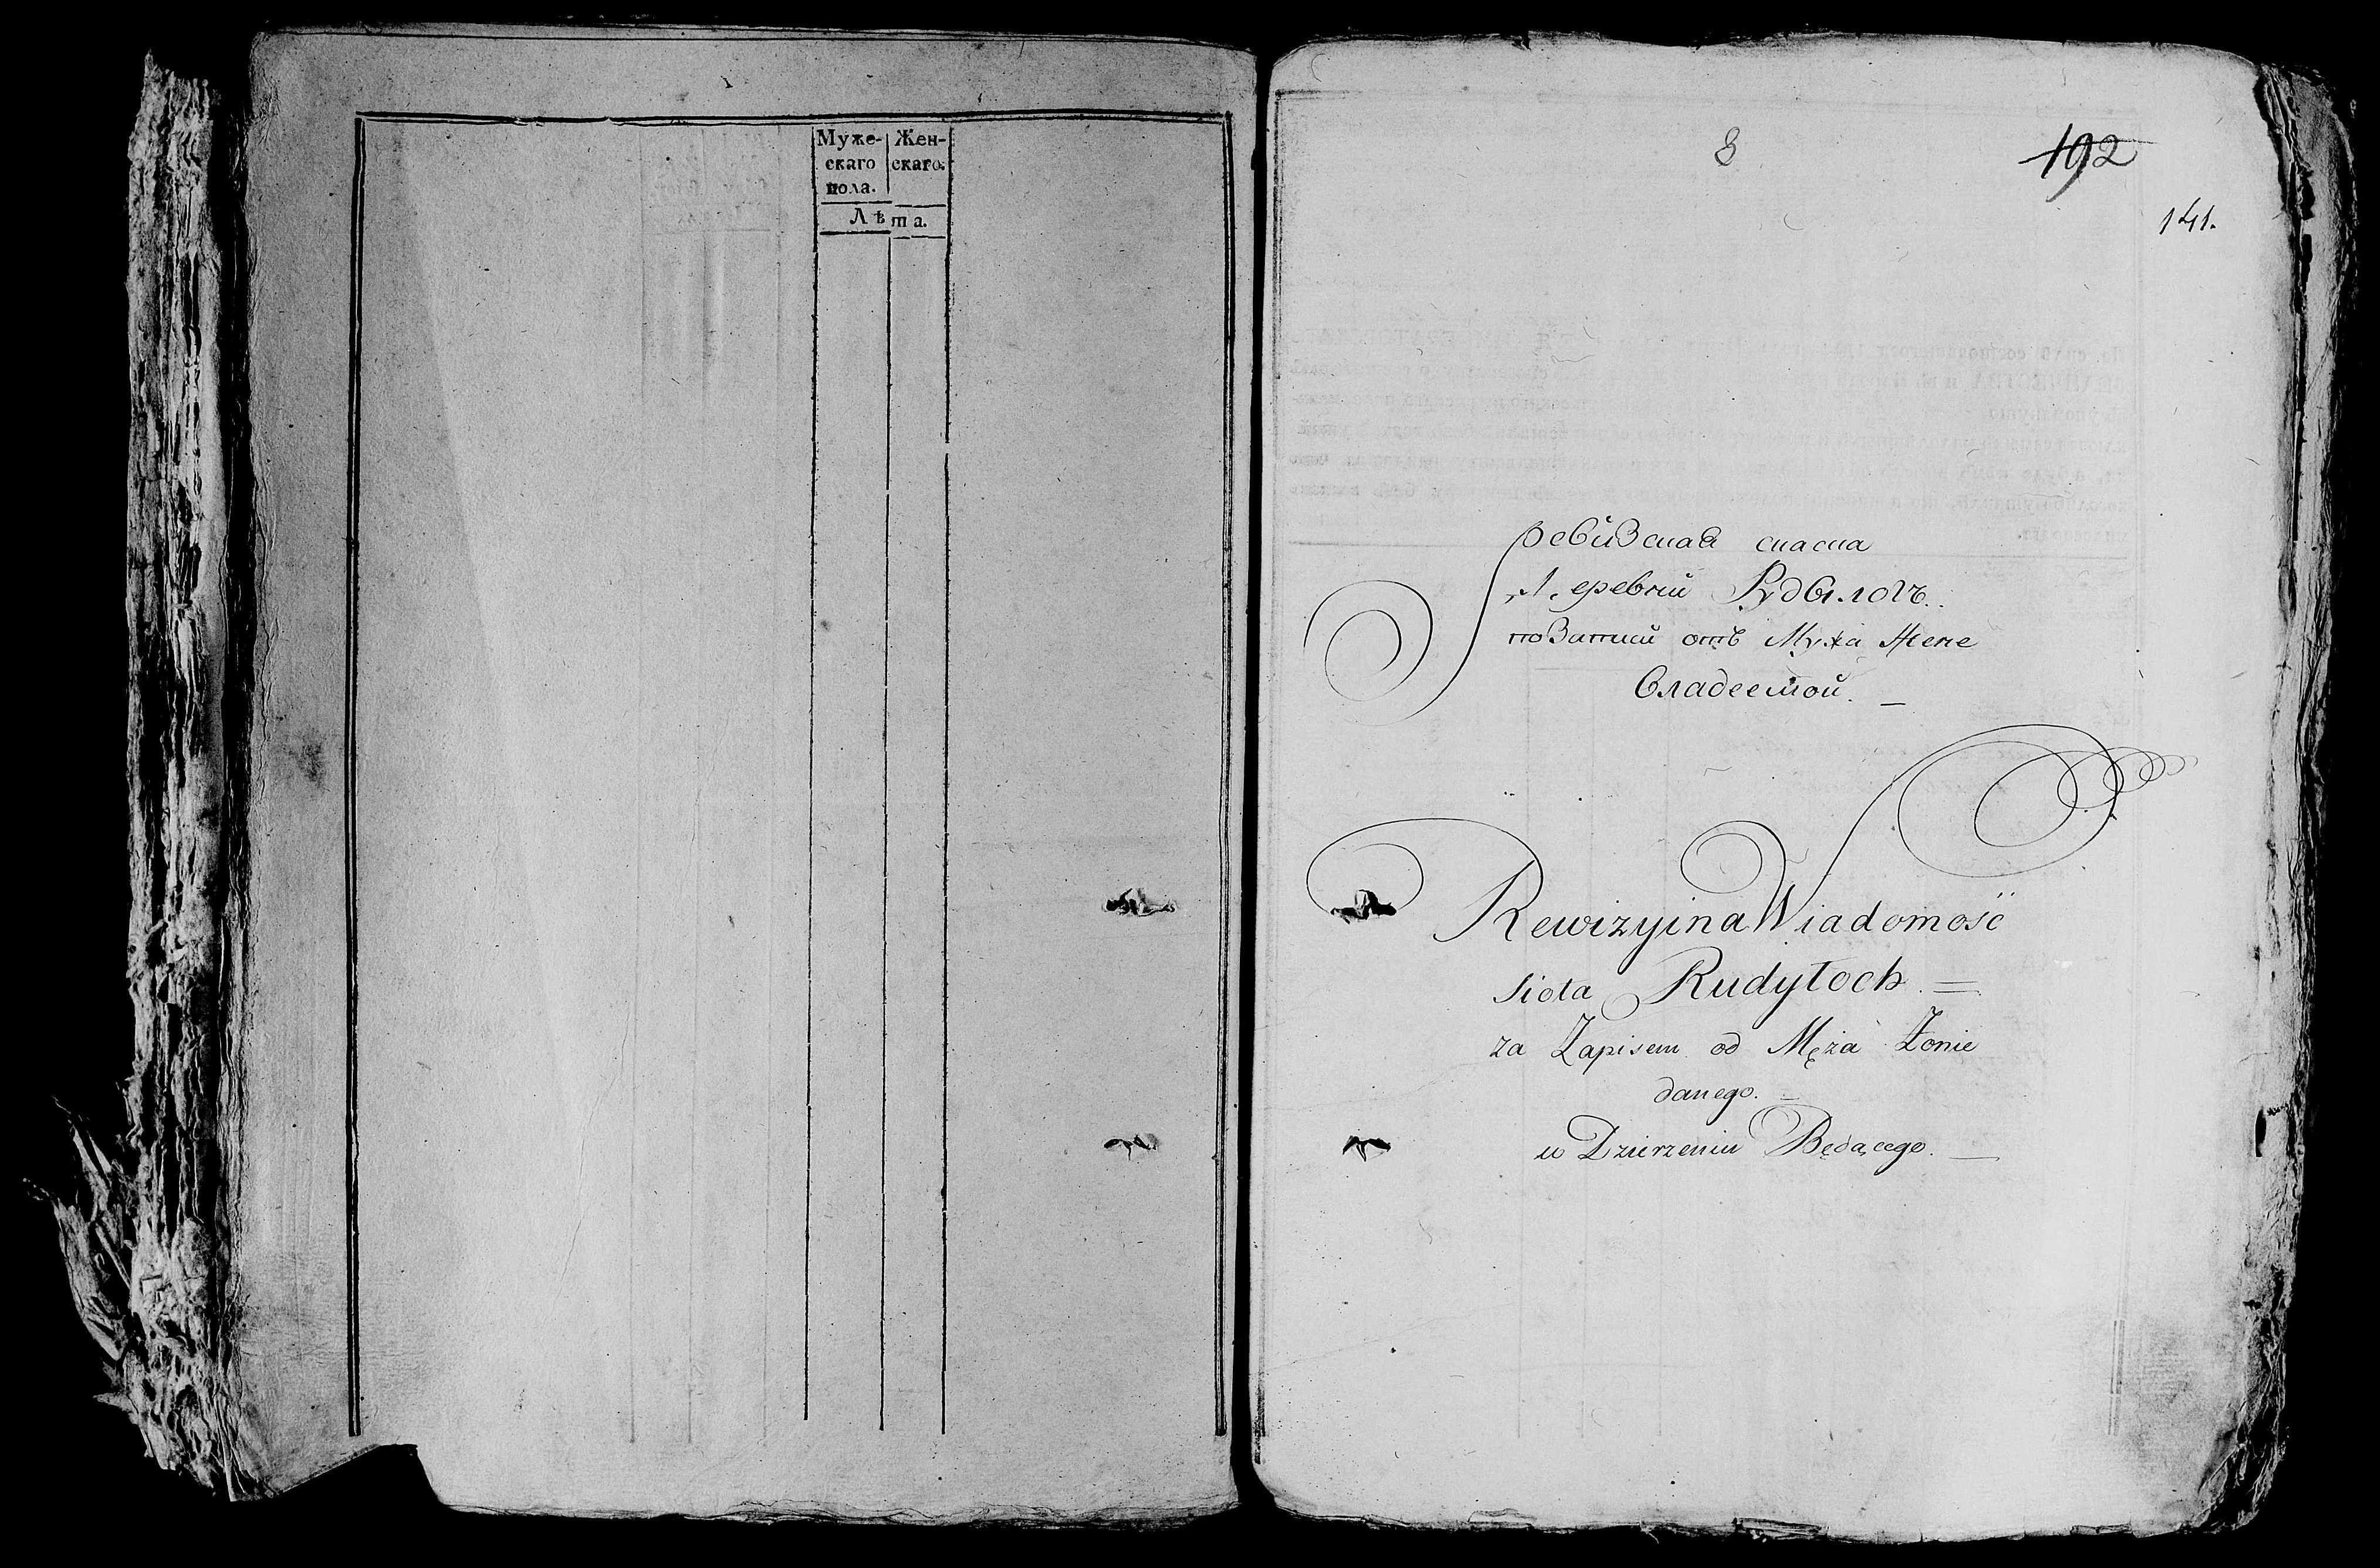 Муже-
скаго
пола.
Жен-
скаго.
Лѣта.
8
192
141.
Ревизская сказка
Деревни Рудылогъ
отъ Мужа Жене
владеемой.
Rewizyina Wiadomość
sioła Rudyłoch
za Zapisem od Męża Żonie
danego.
w Dzierzeniu Będącego.